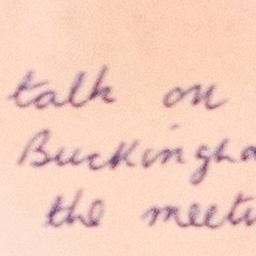 talk on
Buckingha
the meeti